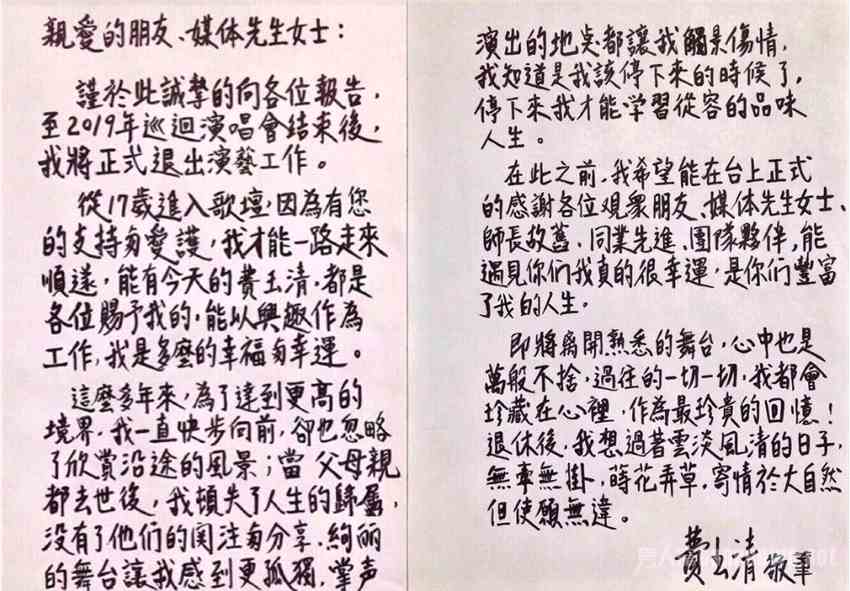 親愛的朋友、媒体先生女士：
謹於此誠摯的向各位報告，
至2019年巡迴演唱會結束後，
我將正式退出演藝工作。
從17歲進入歌壇，因為有您
的支持与愛護，我才能一路走來
順遂，能有今天的費玉清，都是
各位賜予我的，能以興趣作為
工作，我是多麼的幸福与幸運。
這麼多年來，為了達到更高的
境界，我一直快步向前，卻也忽略
了欣賞沿途的風景；當父母親
都去世後，我頓失了人生的歸屬，
没有了他們的関注与分享，絢麗
的舞台讓我感到更孤獨，掌声
演出的地点都讓我觸景傷情，
我知道是我該停下來的時候了，
停下來我才能学習從容的品味
人生。
在此之前，我希望能在台上正式
的感謝各位觀衆朋友、媒体先生女士、
師長故舊、同業先進、團隊夥伴，能
遇見你們我真的很幸運，是你們豐富
了我的人生。
即將离開熟悉的舞台，心中也是
萬般不捨，過往的一切一切，我都會
珍藏在心裡，作為最珍貴的回憶！
退休後，我想過著雲淡風清的日子，
無牽無掛，蒔花弄草，寄情於大自然
但使願無違。
費玉清 敬筆